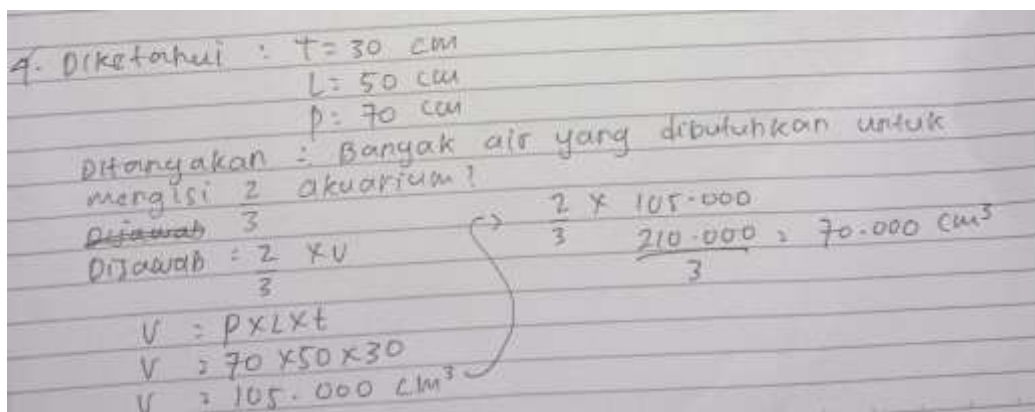 4. Diketahui : t = 30 cm
L = 50 cm
p = 70 cm
Ditanyakan = Banyak air yang dibutuhkan untuk
mengisi 2/3 akuarium?
Dijawab
Dijawab = 2/3 x V
V = p x L x t
V = 70 x 50 x 30
V = 105.000 cm³
2/3 x 105.000
210.000/3 = 70.000 cm³